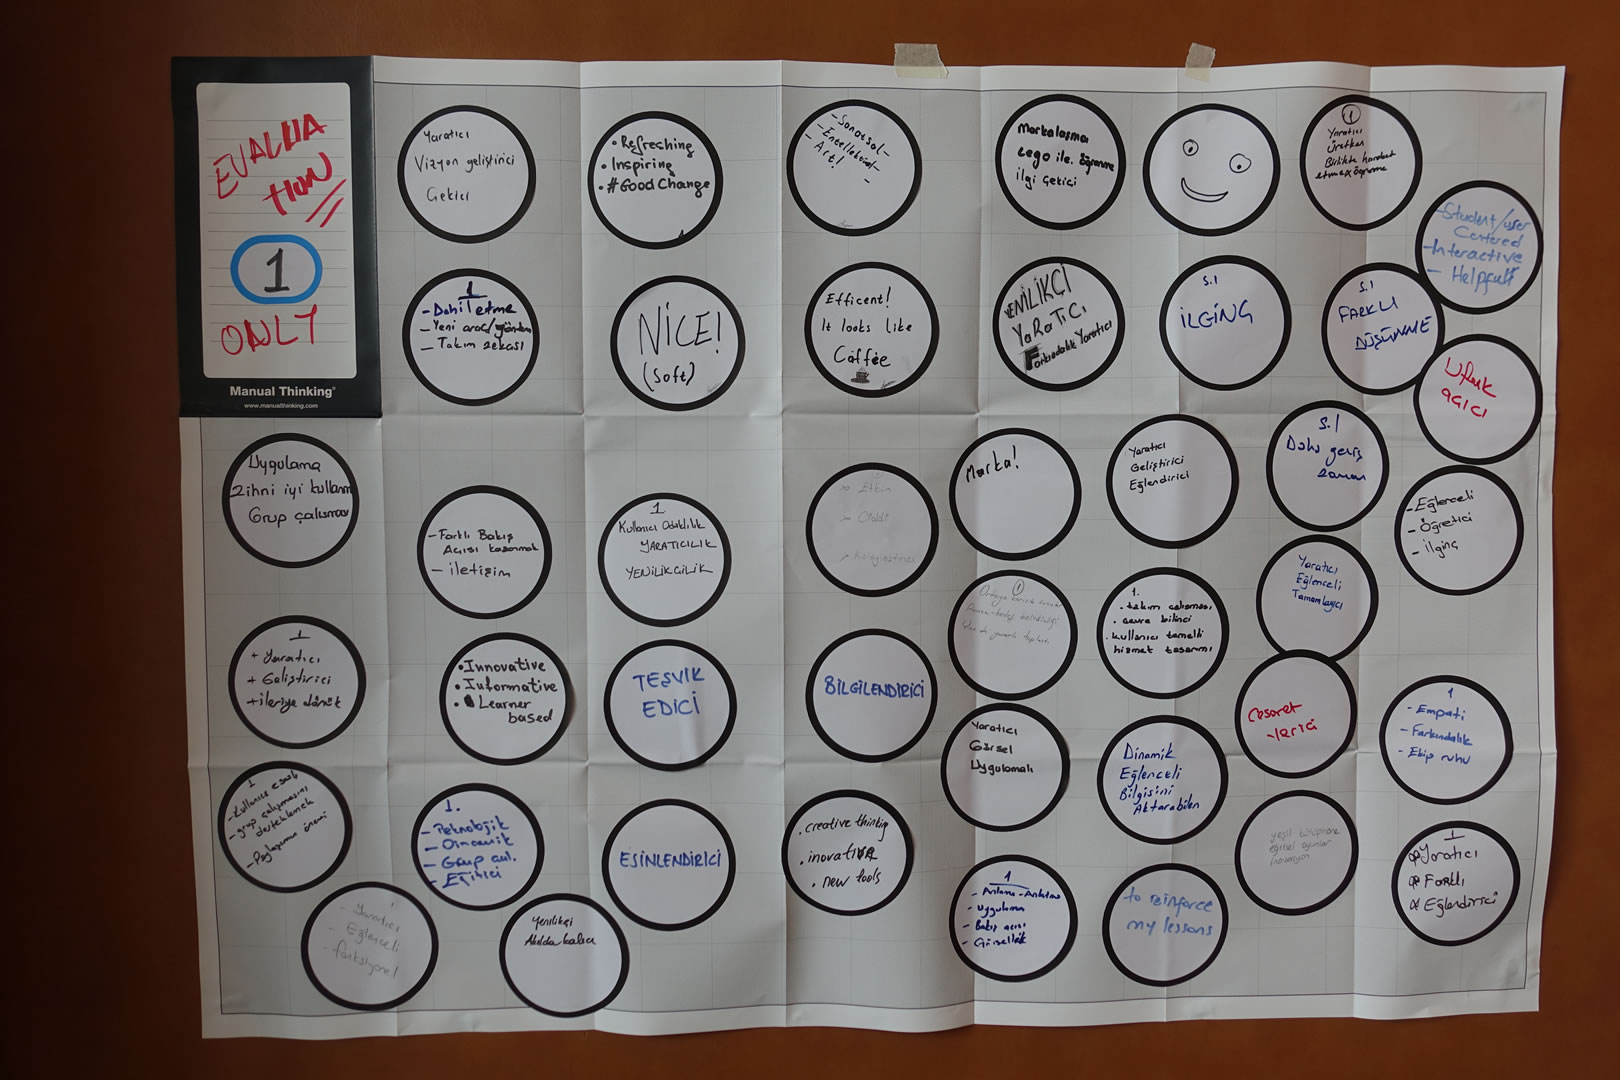 EVALUA
TION
1
ONLY
Manual Thinking®
www.manualthinking.com
Yaratıcı
Vizyon geliştirici
Çekici
• Refreshing
• Inspiring
• #GoodChange
- Sanatsal -
- Entellektüel -
- Art! -
Markalaşma
Lego ile öğrenme
ilgi çekici
1
Yaratıcı
Üretken
Birlikte hareket
etmeyi öğrenme
- Student/user
Centered
- Interactive
- Helpfull
1
- Dahil etme
- Yeni araç/yöntem
- Takım zekası
NİCE!
(Soft)
Efficent!
It looks like
Coffee
YENİLİKÇİ
YARATICI
Farkındalık Yaratıcı
S.1
İLGİNÇ
S.1
FARKLI
DÜŞÜNME
Ufuk
açıcı
Uygulama
Zihni iyi kullanm
Grup çalışması
- Farklı Bakış
Açısı kazanmak
- iletişim
1
Kullanıcı Odaklılık
YARATICILIK
YENİLİKÇİLİK
Etkin
Ciddi
Marka!
Yaratıcı
Geliştirici
Eğlendirici
S.1
Daha geniş
zaman
- Eğlenceli
- Öğretici
- ilginç
1
1.
• takım çalışması
• çevre bilinci
• kullanıcı temelli
hizmet tasarımı
Yaratıcı
Eğlenceli
Tamamlayıcı
1
+ Yaratıcı
+ Geliştirici
+ ileriye dönük
• Innovative
• Informative
• Learner
based
TEŞVİK
EDİCİ
BİLGİLENDİRİCİ
Yaratıcı
Görsel
Uygulamalı
Dinamik
Eğlenceli
Bilgisini
Aktarabilen
Cesaret
verici
1
- Empati
- Farkındalık
- Ekip ruhu
1
- Kullanıcı esaslı
- grup çalışmasını
desteklemek
- Paylaşımın önemi
1.
- Teknolojik
- Dinamik
- Grup
- Eğitici
ESİNLENDİRİCİ
• creative thinking
• inovative
• new tools
1
- Anlama-Anlatma
- Uygulama
- Bakış açısı
- Görsellik
to reinforce
my lessons
yeşil kütüphane
eğitsel oyunlar
inovasyon
1
Yaratıcı
Farklı
Eğlendirici
1
- Yaratıcı
- Eğlenceli
- fonksiyonel
Yenilikçi
Akılda kalıcı